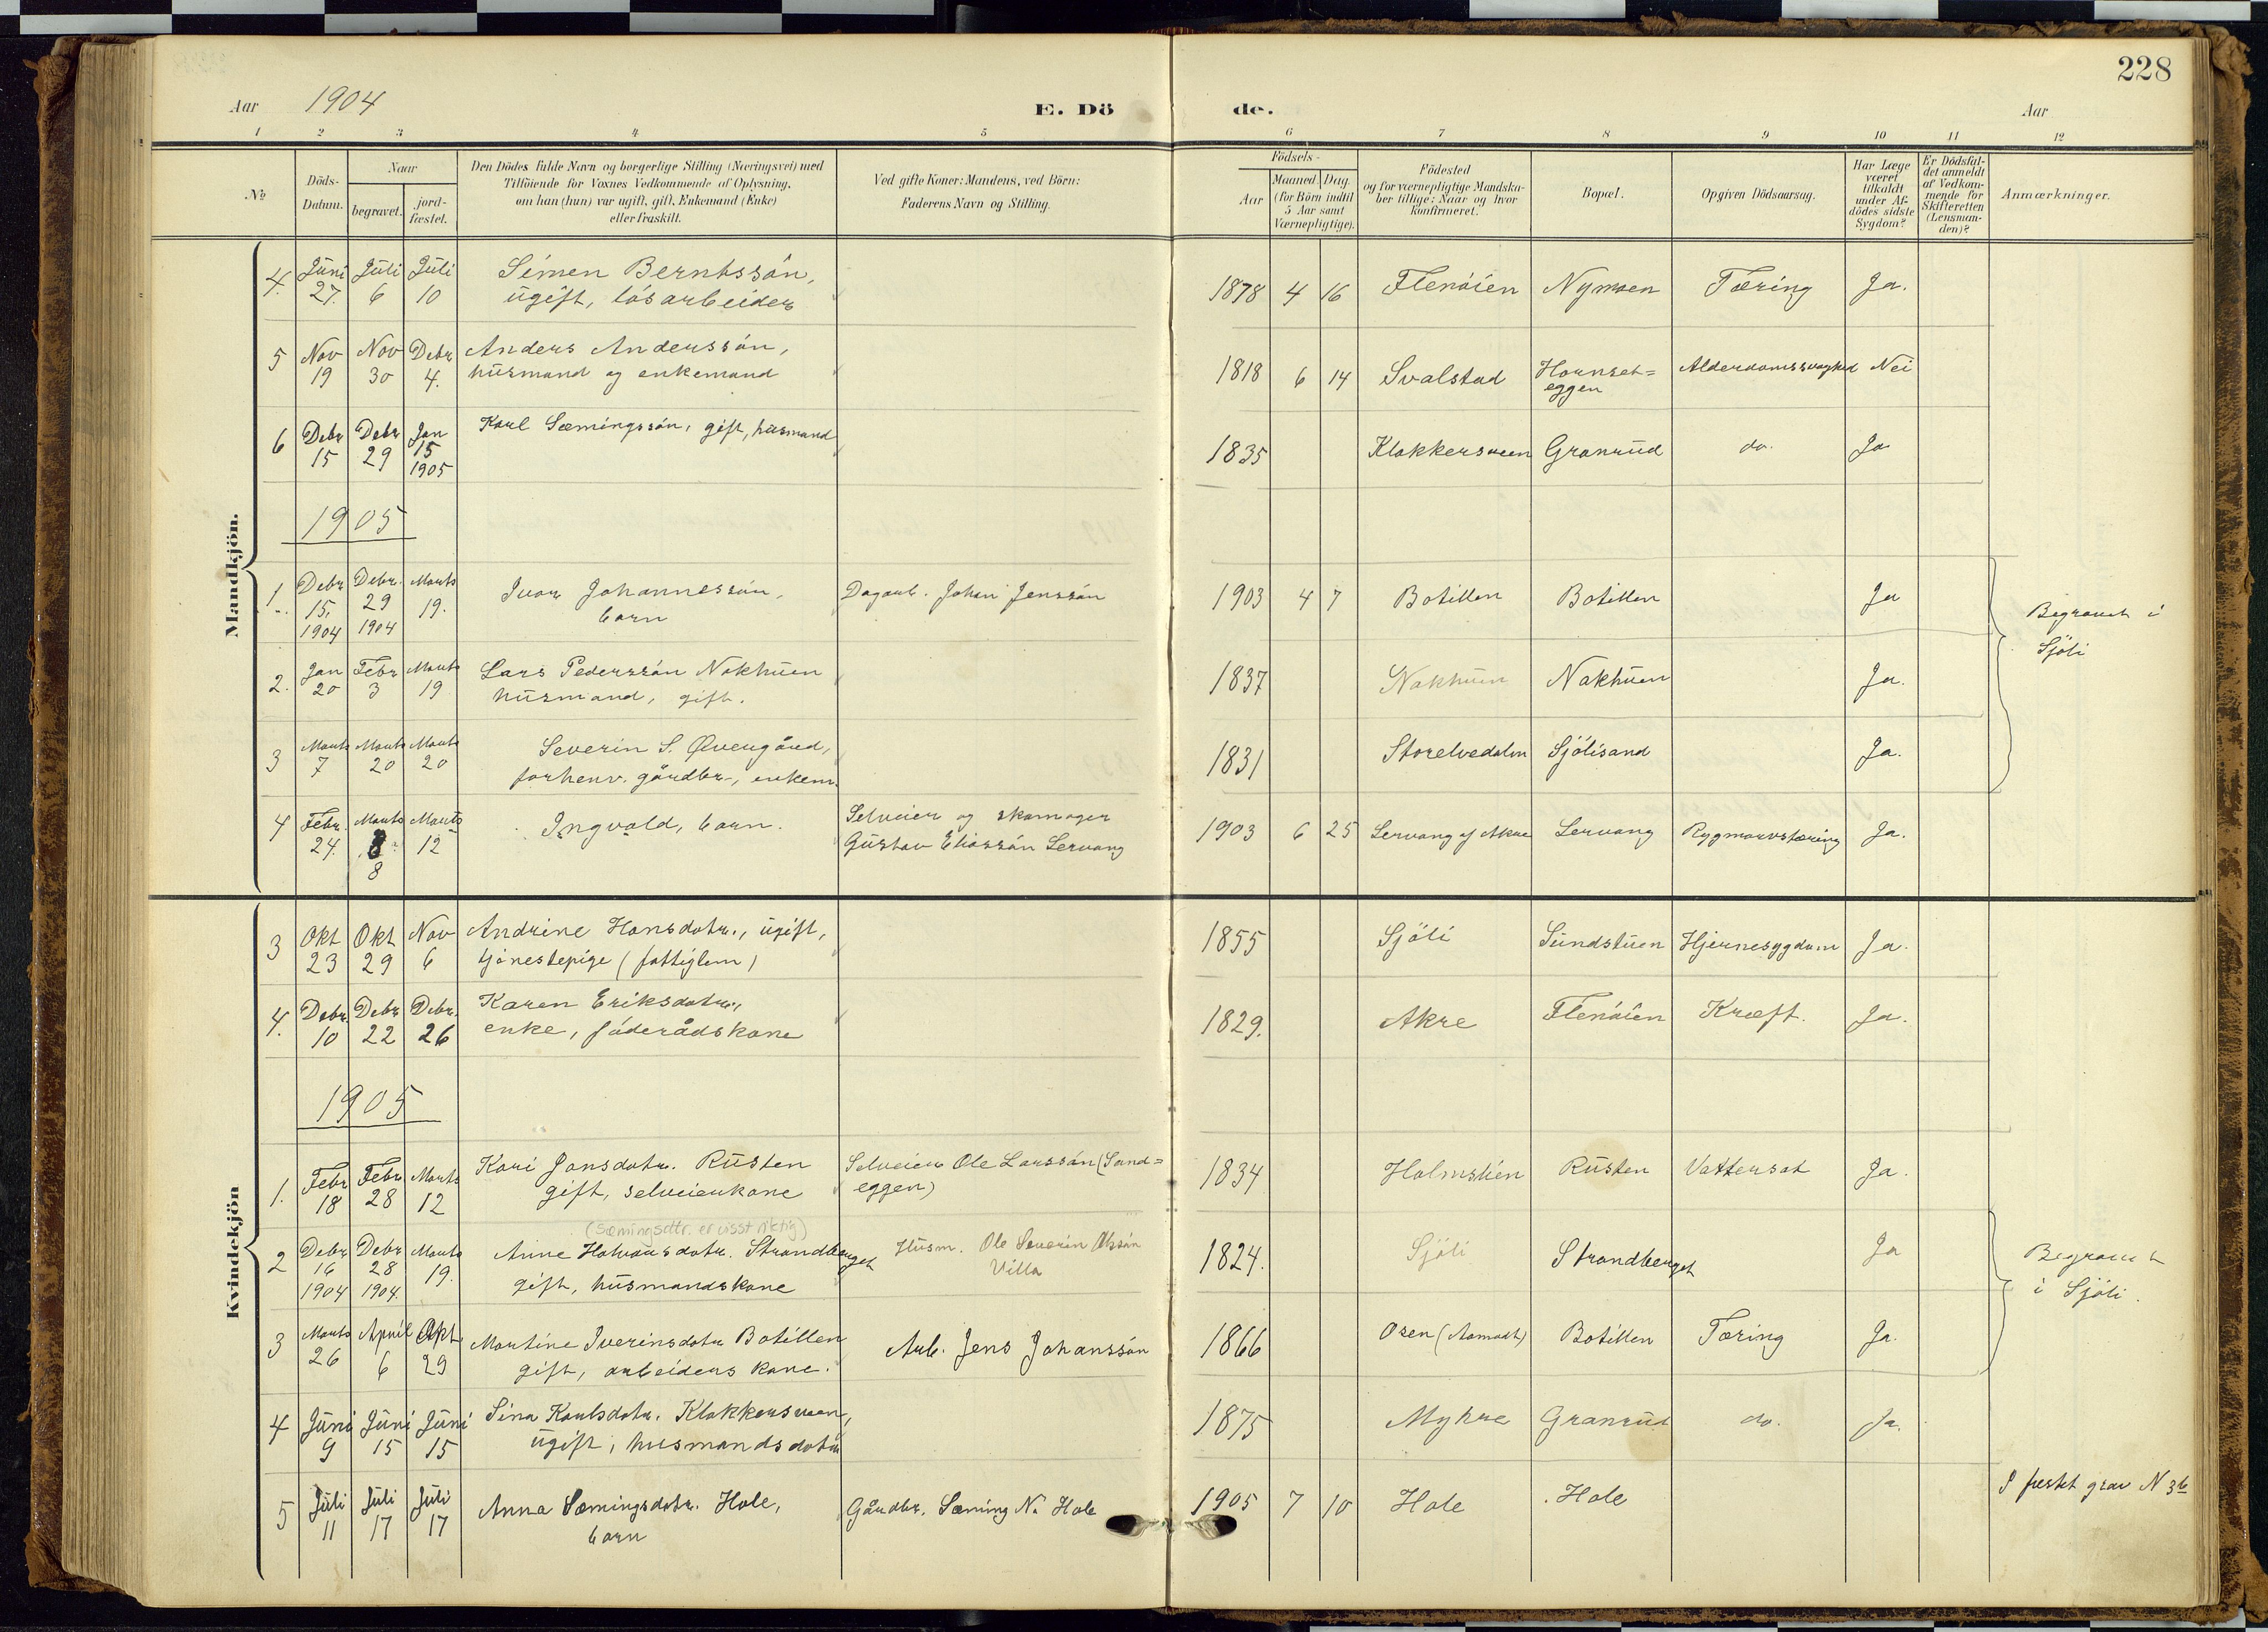 228
Aar 1904 E. Dö de. Aar
1 2 3 4 5 6 7 8 9 10 11 12
No
Döds-Datum.
Naar
begravet.
jord-fæstet.
Den Dödes fulde Navn og borgerlige Stilling (Næringsvei) med
Tilföiende for Voxnes Vedkommende af Oplysning,
om han (hun) var ugift, gift, Enkemand (Enke)
eller fraskilt.
Ved gifte Koner: Mandens, ved Börn:
Faderens Navn og Stilling.
Födsels-
Aar
Maaned. Dag.
(for Börn indtil
5 Aar samt
Værnepligtige).
Födested
og for værnepligtige Mandska-
ber tillige: Naar og hvor
konfirmeret.
Bopæl.
Opgiven Dödsaarsag.
Har Læge
været
tilkaldt
under Af-
dödes sidste
Sygdom?
Er Dödsfal-
det anmeldt
af Vedkom-
mende for
Skifteretten
(Lensman-
den)?
Anmærkninger.
Mandkjön.
4. Juni Juli Juli Simen Berntssön,
27. 6 10 ugift, lösarbeider 1878 4 16 Flenöien Nymoen Tæring Ja.
5 Nov Nov Debr Anders Anderssön,
19 30 4. husmand og enkemand 1818 6 14 Svalstad Hornset=
eggen Alderdomssvaghed Nei
6 Debr Debr Jan Karl Sæmingssön, gift, husmand
15 29 15 1835 Klokkersveen Granrud do. Ja
1905
1905
1. Debr Debr. Marts Ivar Johannessön, Dagarb. Johan Jenssön 1903 4 7 Botillen Botillen Ja
15. 29 19. barn
1904 1904
Begravet i
Sjöli
2. Jan Febr Marts Lars Pederssön Nakhuen 1837 Nakhuen Nakhuen Ja.
20 3 19 husmand, gift.
3 Marts Marts Marts Severin S. Øvergård, 1831 Storelvedalen Sjölisand Ja.
7 20 20 forhenv. gårdbr., enkem.
4 Febr. Marts Marts Ingvald, barn. Selveier og skomager
24. 8 12 Gustav Eliassön Lervang 1903 6 25 Lervang af Akre Lervang Rygmarvstæring Ja.
8
Kvindekjön
3 Okt Okt Nov Andrine Hansdatr., ugift, 1855 Sjöli Sundstuen Hjernesygdom Ja.
23 29 6 tjenestepige (fattiglem)
4. Debr. Debr Debr. Karen Eriksdatr.,
10 22 26 enke, föderådskone 1829. Akre Flenöien Kræft. Ja.
1905
1. Febr Febr Marts Kari Jonsdatr. Rusten Selveier Ole Larssön (Sand=
18 28 12 gift, selveierkone eggen) 1834 Holmstien Rusten Vattersot Ja.
(Sæmingsdtr. er visst riktig)
2 Debr Debr Marts Anne Halvorsdatr. Strandberget Husm. Ole Severin Olssön
16 28 19. gift, husmandskone Villa 1824. Sjöli Strandberget Ja
1904 1904.
Begravet
i Sjöli.
3 Marts April Okt Martine Iverinsdatr Botillen Arb. Jens Johanssön 1866 Osen (Aamodt) Botillen Tæring Ja.
26 6 29 gift, arbeiders kone.
4 Juni Juni Juni Sina Karlsdatr. Klokkersveen,
9 15 15 ugift, husmandsdatr 1875 Myhre Granrud do. Ja.
5 Juli Juli Juli Anna Sæmingsdatr. Hole, Gårdbr. Sæming N. Hole 1905 7 10 Hole Hole
11 17 17 barn
I festet grav N 36